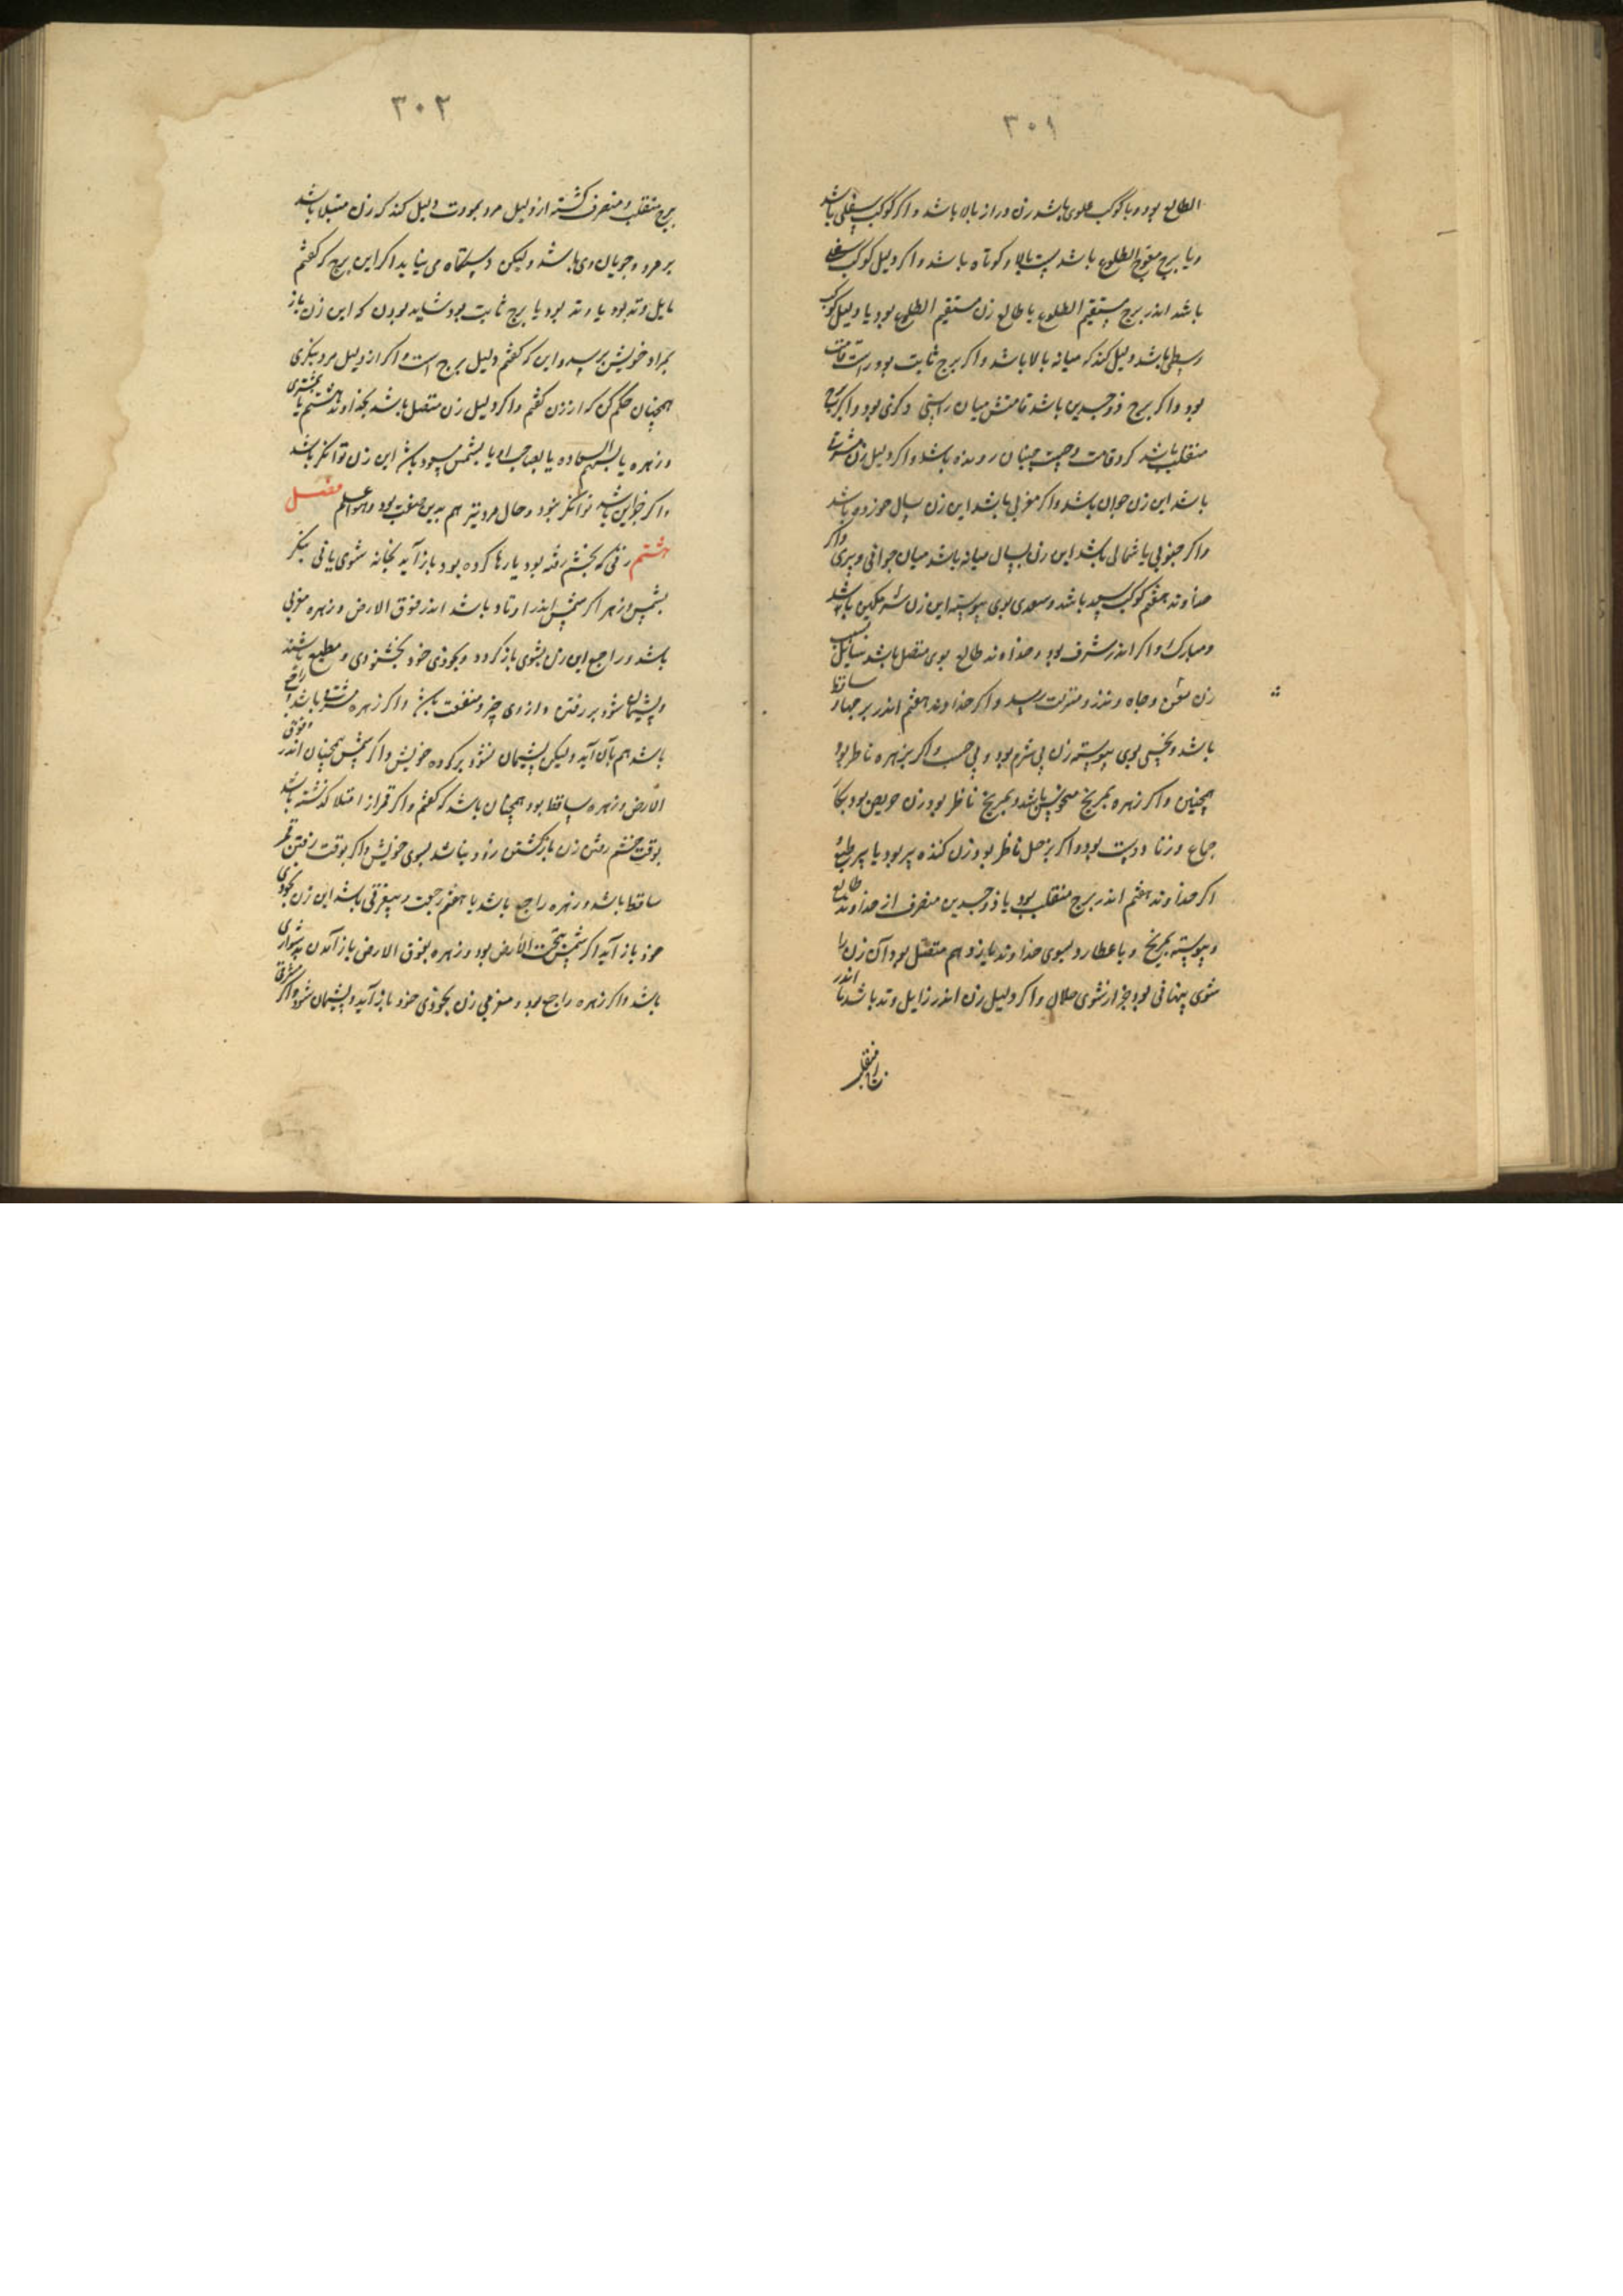 ۳۰۱
الطالع بود و با کوکب علوی باشد زن دراز بالا باشد و اکر کوکب سفلی باشد
و یا برج معوج الطلوع باشد پست بالا و کوتاه باشد و اکر دلیل کوکب سفلی
باشد اندر برج مستقیم الطلوع یا طالع زن مستقیم الطلوع بود یا دلیل کوکب
وسطی باشد دلیل کند که میانه بالا باشد و اکر برج ثابت بود راست قامت
بود و اکر برج ذوجسدین باشد قامتش میان راستی و کژی بود و اکر برج
منقلب باشد کرد قامت و چست چنان رونده باشد و اکر دلیل زن مشرقی
باشد این زن جوان باشد و اکر مغربی باشد این زن سال خورده باشد
و اکر جنوبی یا شمالی باشد این زن بسال میانه باشد میان جوانی و پیری و اکر
خداوند هفتم کوکب سعید باشد و سعدی بوی پیوسته این زن شرمکین باشد
و مبارک و اکر اندر شرف بود و خداوند طالع بوی متصل باشد بسبب این
زن بعز و جاه و قدر و منزلت رسد و اکر خداوند هفتم اندر برجها ساقط
باشد و نحسی بوی پیوسته زن بی شرم بود و بی حسب و اکر بزهره ناظر بود
همچنین و اکر زهره بمریخ منحوس باشد و بمریخ ناظر بود زن حریص بود بکار
جماع و زنا دوست بود و اکر بزحل ناظر بود زن کنده پیر بود یا پیر طبع
اکر خداوند هفتم اندر برج منقلب بود یا ذوجسدین منصرف از خداوند طالع
و پیوسته بمریخ و یا عطارد بسوی خداوند یازدهم متصل بود آن زن را
شوی پنهانی بود جز از شوی حلال و اکر دلیل زن اندر زایل وتد باشد یا اندر
۳۰۲
برج منقلب و منصرف کشته از دلیل مرد بعودت دلیل کند که زن مبتلا باشد
بر مرد و جویان وی باشد ولیکن دستکاه می نیابد اکر این برج که کفتم
مایل وتد بود یا وتد بود یا برج ثابت بود شاید بودن که این زن باز
بمراد خویش برسد و این که کفتم دلیل برج است و اکر از دلیل مرد بنکری
همچنان حکم کن که از زن کفتم و اکر دلیل زن متصل باشد بخداوند هشتم یا بمشتری
و زهره یا بسهم السعاده یا بصاحب او یا بشمس مسعود باشد این زن توانکر باشد
و اکر جز این باشد توانکر نبود و حال مرد نیز هم بدین صفت بود والله اعلم فصل
هشتم زنی که بخشم رفته بود یا رها کرده بود باز آید بخانه شوی یا نی بنکر
بشمس و زهره اکر شمس اندر اوتاد باشد اندر فوق الارض و زهره مغربی
باشد و راجع این زن بشوی باز کردد و بخودی خود بخشنودی و مطیع باشد
و پشیمان شود بر رفتن و از وی چیز و منفعت باشد و اکر زهره مشرقی باشد و راجع
باشد هم بازآید ولیکن پشیمان نشود بر کرده خویش و اکر شمس همچنان اندر فوق
الارض و زهره ساقط بود همچنان باشد که کفتم و اکر قمر از امتلا کذشته باشد
بوقت خشم رفتن زن باز کشتن زود نباشد بسوی خویش و اکر بوقت رفتن قمر
ساقط باشد و زهره راجع باشد یا هفتم رجعت و مغربی باشد این زن بخودی
خود باز آید اکر شمس تحت الارض بود و زهره بفوق الارض باز آمدن بدشواری
باشد و اکر زهره راجع بود و مغربی زن بخودی خود باز آید و پشیمان شود و اکر مشرقی